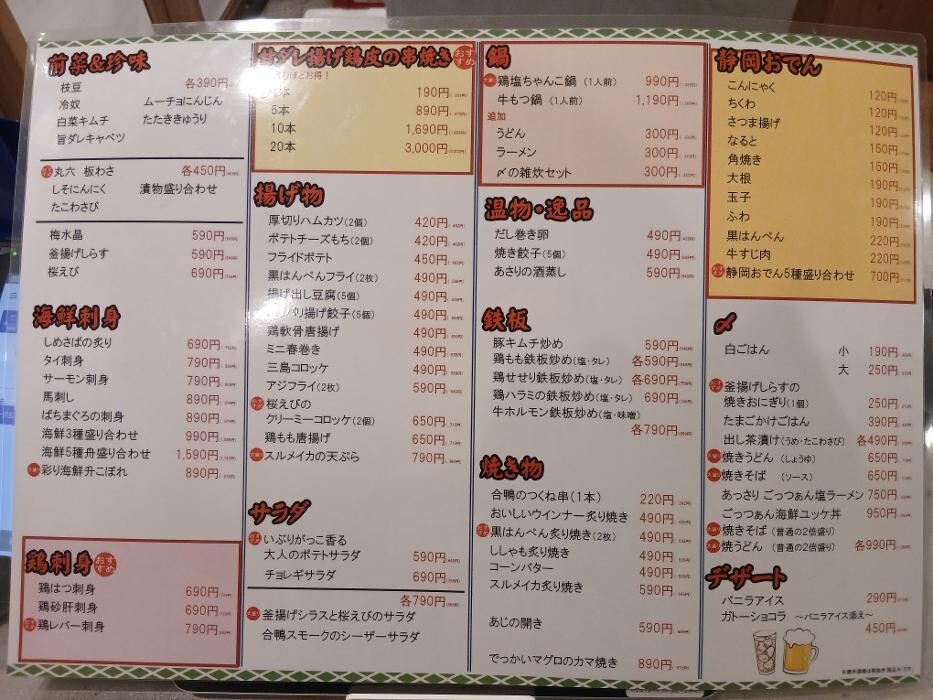 前菜&珍味
枝豆 各390円
冷奴 ムーチョにんじん
白菜キムチ たたききゅうり
旨ダレキャベツ
丸六 板わさ 各450円
しそにんにく 漬物盛り合わせ
たこわさび
梅水晶 590円
釜揚げしらす 590円
桜えび 690円
海鮮刺身
しめさばの炙り 690円
タイ刺身 790円
サーモン刺身 790円
馬刺し 890円
ばちまぐろの刺身 890円
海鮮3種盛り合わせ 990円
海鮮5種舟盛り合わせ 1,590円
彩り海鮮升こぼれ 890円
鶏刺身 おすすめ
鶏はつ刺身 690円
鶏砂肝刺身 690円
鶏レバー刺身 790円
旨ダレ揚げ鶏皮の串焼き おすすめ
1本 190円
5本 890円
10本 1,690円
20本 3,000円
揚げ物
厚切りハムカツ(2個) 420円
ポテトチーズもち(2個) 420円
フライドポテト 450円
黒はんぺんフライ(2枚) 490円
揚げ出し豆腐(5個) 490円
パリパリ揚げ餃子(5個) 490円
鶏軟骨唐揚げ 490円
ミニ春巻き 490円
三島コロッケ 490円
アジフライ(2枚) 590円
桜えびの
クリーミーコロッケ(2個) 650円
鶏もも唐揚げ 650円
スルメイカの天ぷら 790円
サラダ
いぶりがっこ香る
大人のポテトサラダ 590円
チョレギサラダ 690円
各790円
釜揚げシラスと桜えびのサラダ
合鴨スモークのシーザーサラダ
鍋
鶏塩ちゃんこ鍋 (1人前) 990円
牛もつ鍋 (1人前) 1,190円
追加
うどん 300円
ラーメン 300円
〆の雑炊セット 300円
温物・逸品
だし巻き卵 490円
焼き餃子(5個) 490円
あさりの酒蒸し 590円
鉄板
豚キムチ炒め 590円
鶏もも鉄板炒め(塩・タレ) 各590円
鶏せせり鉄板炒め(塩・タレ) 各690円
鶏ハラミの鉄板炒め(塩・タレ) 690円
牛ホルモン鉄板炒め(塩・味噌)
各790円
焼き物
合鴨のつくね串(1本) 220円
おいしいウインナー炙り焼き 490円
黒はんぺん炙り焼き(2枚) 490円
ししゃも炙り焼き 490円
コーンバター 490円
スルメイカ炙り焼き 590円
あじの開き 590円
でっかいマグロのカマ焼き 890円
静岡おでん
こんにゃく 120円
ちくわ 120円
さつま揚げ 120円
なると 150円
角焼き 150円
大根 190円
玉子 190円
ふわ 190円
黒はんぺん 220円
牛すじ肉 220円
静岡おでん5種盛り合わせ 700円
〆
白ごはん 小 190円
大 250円
釜揚げしらすの
焼きおにぎり(1個) 250円
たまごかけごはん 390円
出し茶漬け(うめ・たこわさび) 各490円
焼きうどん (しょうゆ) 650円
焼きそば (ソース) 710円
あっさり ごっつぁん塩ラーメン 750円
ごっつぁん海鮮ユッケ丼 950円
焼きそば (普通の2倍盛り)
焼うどん (普通の2倍盛り) 各990円
デザート
バニラアイス 290円
ガトーショコラ ～バニラアイス添え～
450円